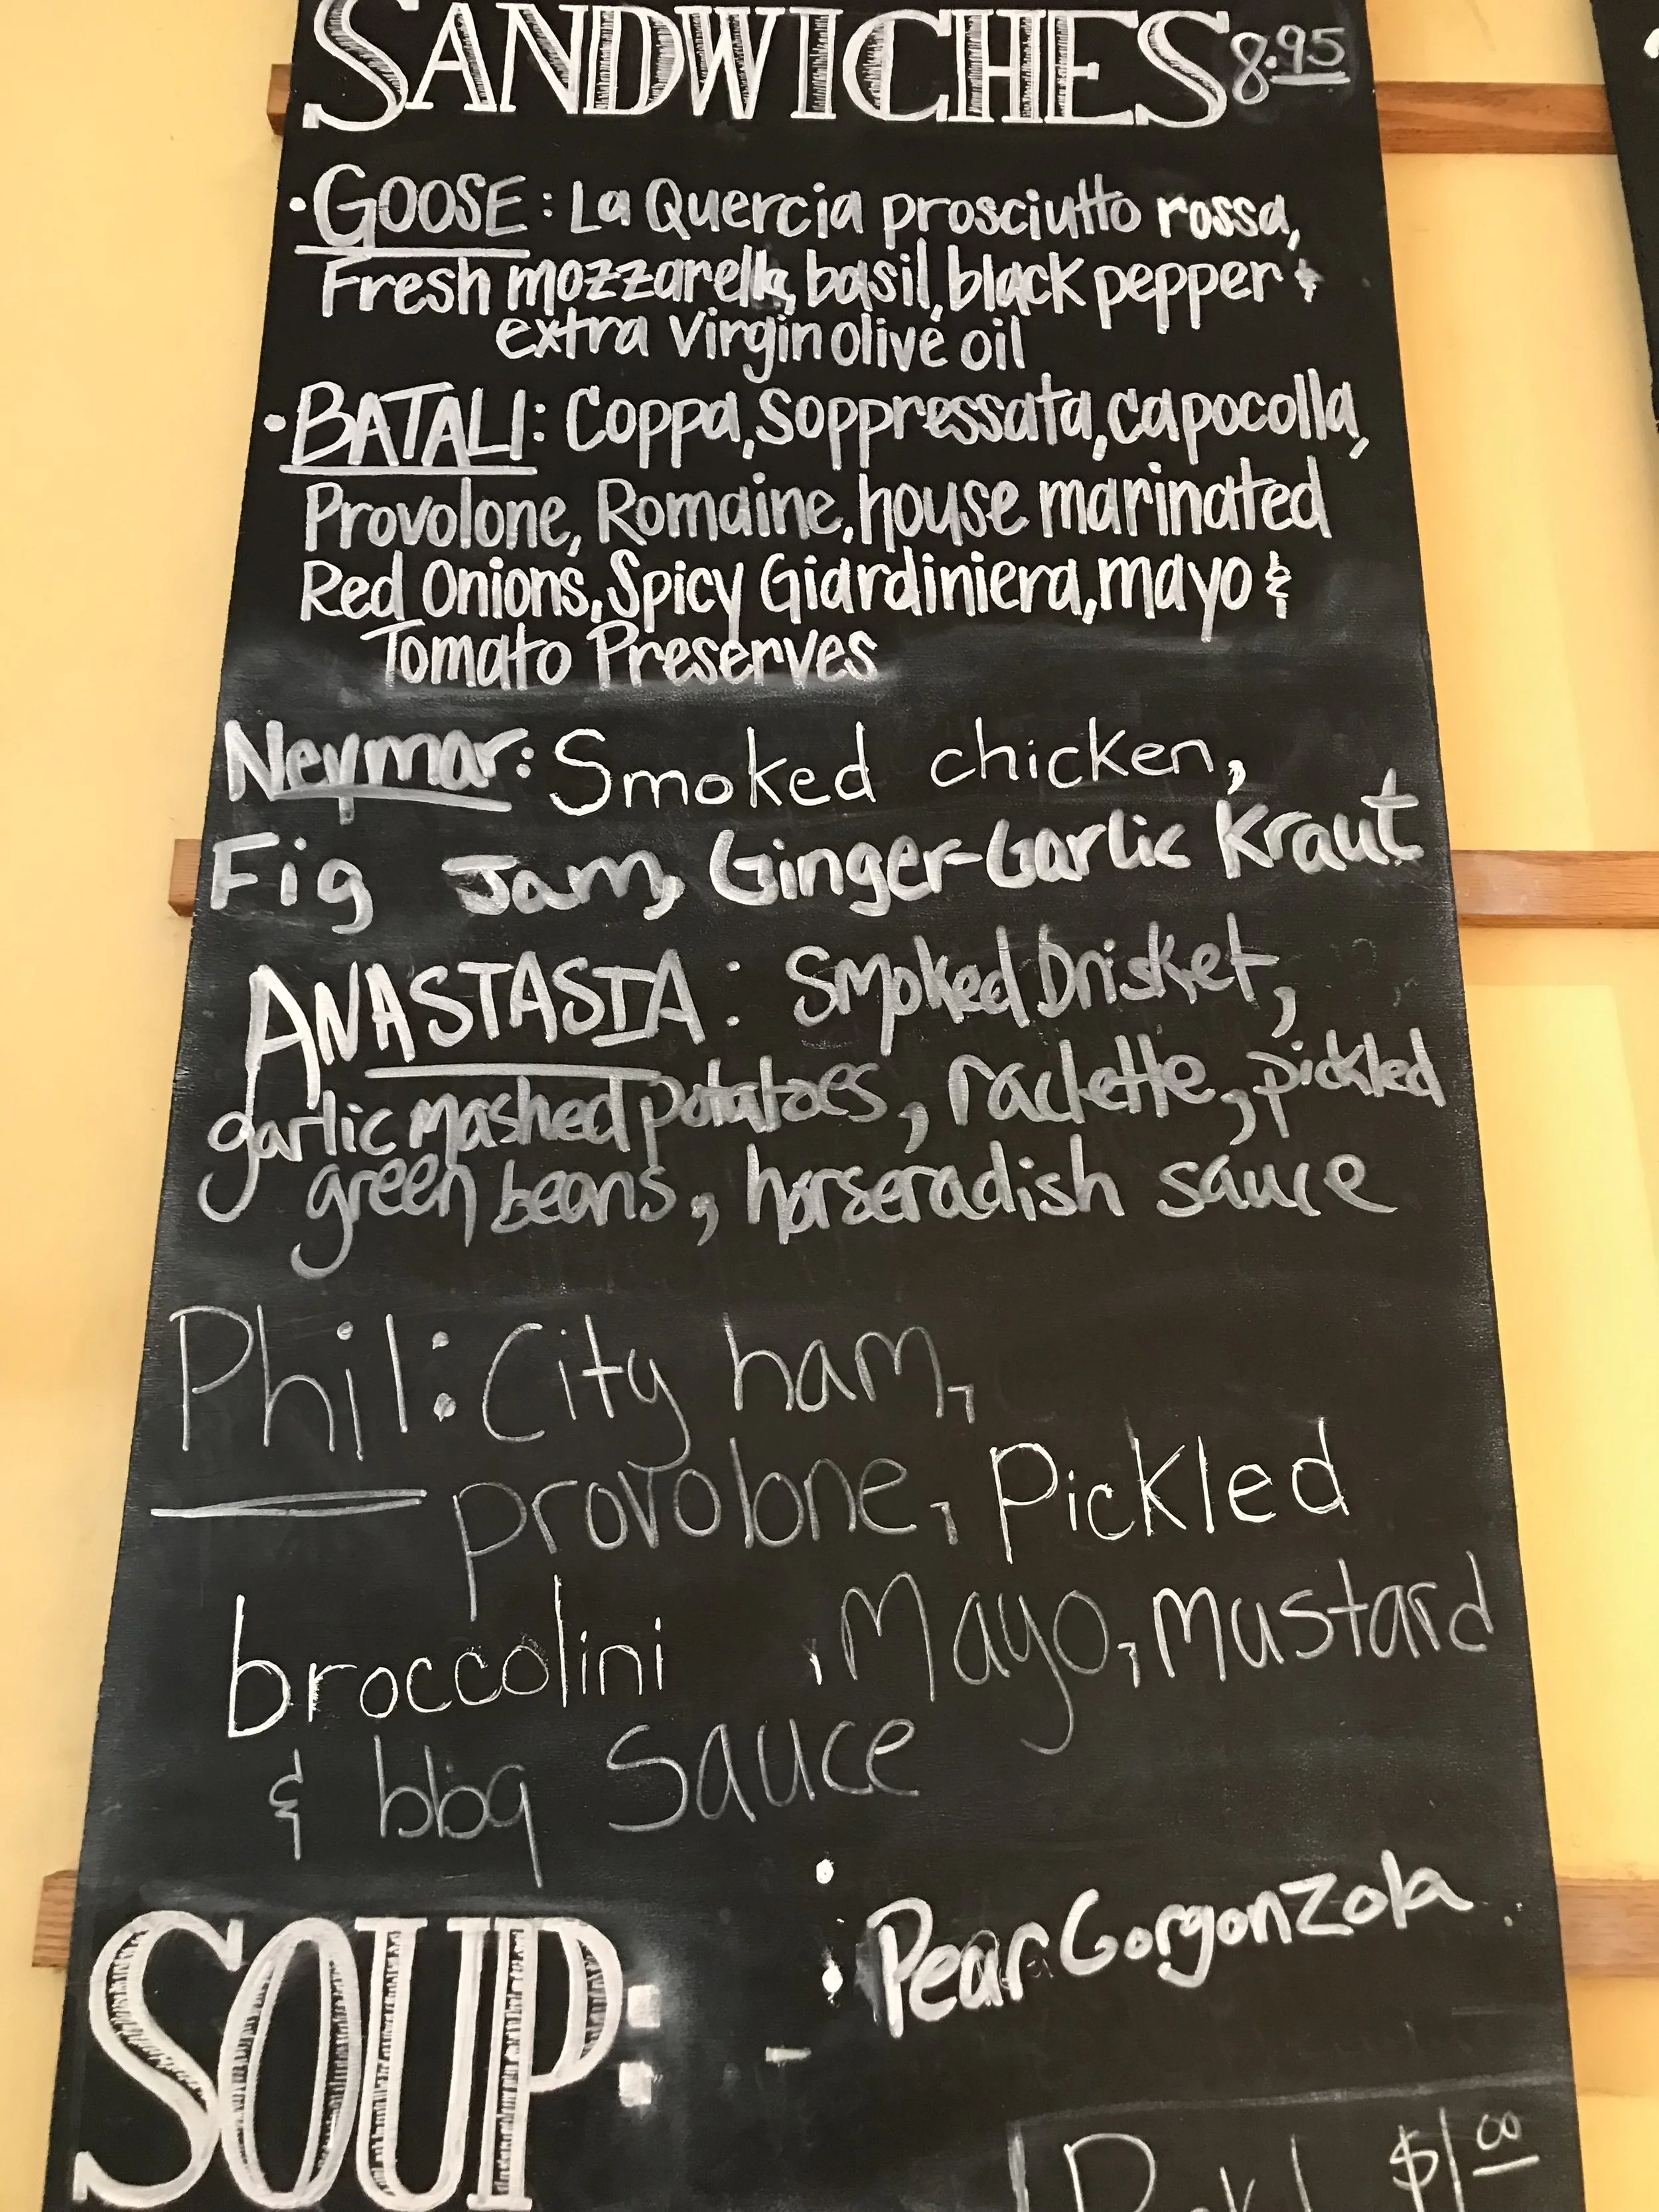 SANDWICHES 8.95
• GOOSE: La Quercia prosciutto rossa,
Fresh mozzarella, basil, black pepper &
extra virgin olive oil
• BATALI: Coppa, Soppressata, capocolla,
Provolone, Romaine, house marinated
Red Onions, Spicy Giardiniera, mayo &
Tomato Preserves
Neymar: Smoked chicken,
Fig Jam, Ginger-Garlic Kraut
ANASTASIA: Smoked Brisket,
garlic mashed potatoes, raclette, pickled
green beans, horseradish sauce
Phil: City ham,
provolone, Pickled
broccolini, Mayo, Mustard
& bbq Sauce
SOUP: • Pear Gorgonzola
$1.00